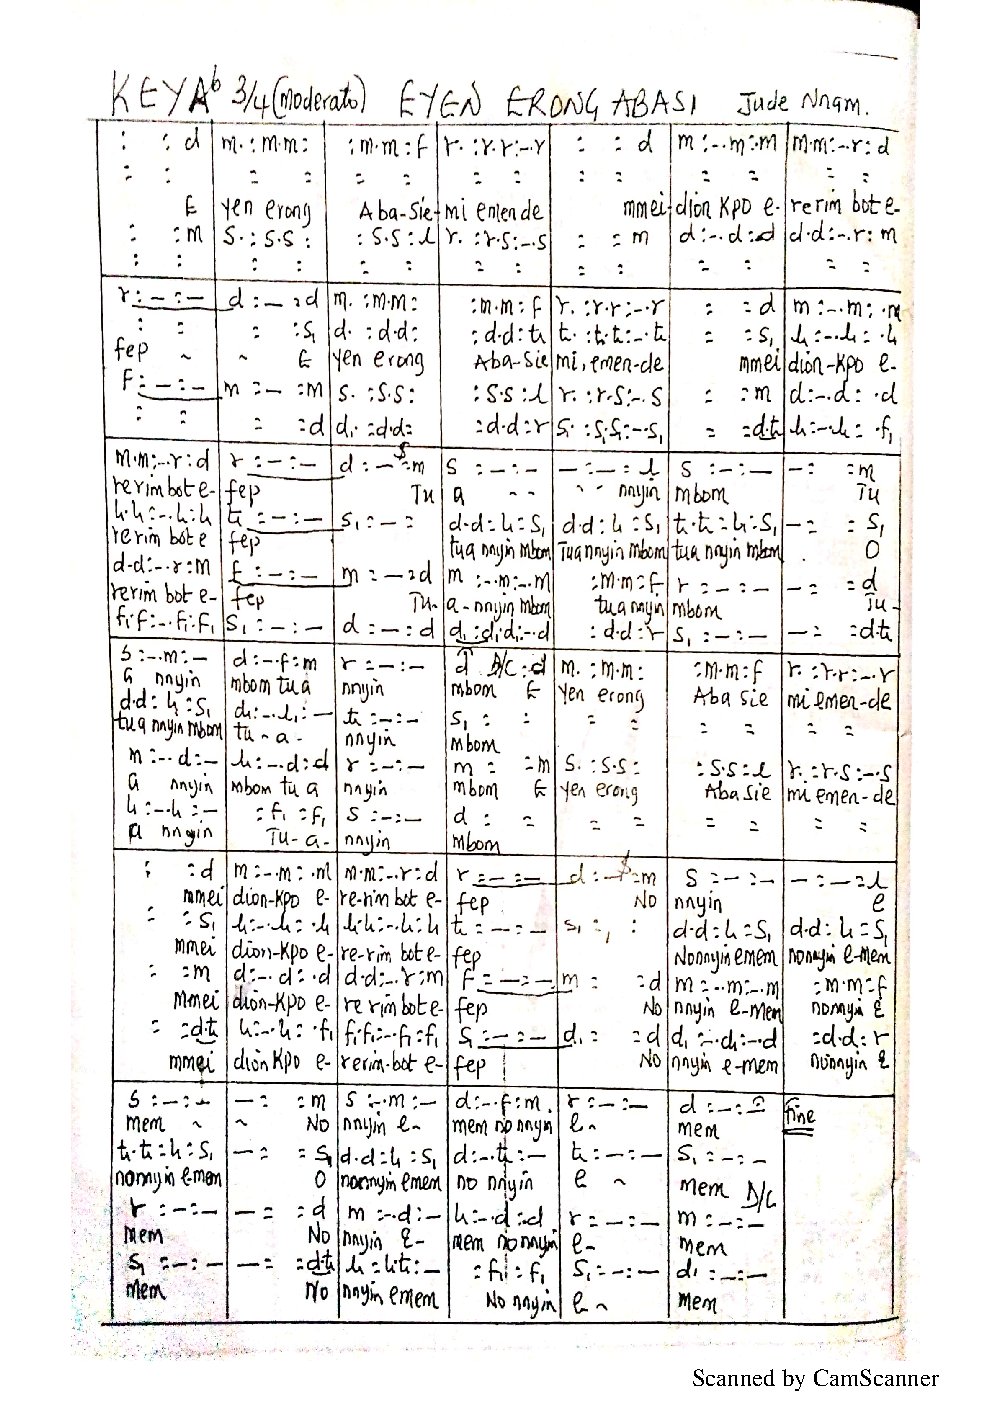 KEY Ab 3/4 (Moderato) EYEN ERONG ABASI Jude Nnam.
: : d | m. : m.m : | : m.m : f | r. : r.r : -.r | : : d | m : -.m : m | m.m : -.r : d
E yen erong Aba-Sie-mi emende mmei-dion Kpo e-rerim bot e-
: : m | s. : s.s : | : s.s : l | r. : r.s : -.s | : : m | d : -.d : d | d.d : -.r : m
r : - : - | d : - : d | m. : m.m : | : m.m : f | r. : r.r : -.r | : : d | m : -.m : .m
: : | : : s₁ | d. : d.d : | : d.d : t₁ | t₁. : t₁.t₁ : -.t₁ | : : s₁ | l₁ : -.l₁ : .l₁
fep ~ ~ E yen erong Aba-Sie mi, emen-de mmei dion-Kpo e-
f : - : - | m : - : m | s. : s.s : | : s.s : l | r. : r.s : -.s | : : m | d : -.d : .d
: : | : : d | d. : d.d : | : d.d : r | s₁. : s₁.s₁ : -.s₁ | : : d.t₁ | l₁ : -.l₁ : .f₁
m.m : -.r : d | r : - : - | d : - : m | s : - : - | - : - : l | s : - : - | - : : m
rerim bot e- fep Tu a - - - - nnyin mbom Tu
l₁.l₁ : -.l₁ : l₁ | t₁ : - : - | s₁ : - : | d.d : l₁ : s₁ | d.d : l₁ : s₁ | t₁.t₁ : l₁ : s₁ | - : : s₁
rerim bot e fep tua nnyin mbom Tua nnyin mbom tua nnyin mbom O
d.d : -.r : m | f : - : - | m : - : d | m : -.m : -.m | : m.m : f | r : - : - | - : : d
rerim bot e- fep Tu- a - nnyin mbom tua nnyin mbom Tu-
f₁.f₁ : -.f₁ : f₁ | s₁ : - : - | d : - : d | d₁ : d₁.d₁ : -.d | : d.d : r | s₁ : - : - | - : : d.t₁
s : -.m : - | d : -.f : m | r : - : - | d D/C : d | m. : m.m : | : m.m : f | r. : r.r : -.r
a nnyin mbom tua nnyin mbom E yen erong Aba Sie mi emen-de
d.d : l₁ : s₁ | d₁ : -.l₁ : - | t₁ : - : - | s₁ : :
tua nnyin mbom tu - a - nnyin mbom
m : -.d : - | l₁ : -.d : d | r : - : - | m : : m | s. : s.s : | : s.s : l | r. : r.s : -.s
a nnyin mbom tu a nnyin mbom E yen erong Aba Sie mi emen-de
l₁ : -.l₁ : - | : f₁ : f₁ | s : - : - | d : :
a nnyin Tu- a- nnyin mbom
: : d | m : -.m : .m | m.m : -.r : d | r : - : - | d : - : m | s : - : - | - : - : l
mmei dion-Kpo e- re-rim bot e- fep No nnyin e
: : s₁ | l₁ : -.l₁ : .l₁ | l₁.l₁ : -.l₁ : l₁ | t₁ : - : - | s₁ : : | d.d : l₁ : s₁ | d.d : l₁ : s₁
mmei dion-Kpo e- re-rim bot e- fep Nonnyin emem nonnyin e-mem
: : m | d : -.d : .d | d.d : -.r : m | f : - : - | m : : d | m : -.m : -.m | : m.m : f
mmei dion-Kpo e- re rim bot e- fep No nnyin e-mem nonnyin E
: : d.t₁ | l₁ : -.l₁ : .f₁ | f₁.f₁ : -.f₁ : f₁ | s₁ : - : - | d₁ : : d | d₁ : -.d₁ : -.d | : d.d : r
mmei dion Kpo e- rerim-bot e- fep No nnyin e-mem nonnyin E
s : - : - | - : : m | s : -.m : - | d : -.f : m | r : - : - | d : - : - fine
mem ~ ~ No nnyin e- mem no nnyin e- mem
t₁.t₁ : l₁ : s₁ | - : : s₁ | d.d : l₁ : s₁ | d : -.t₁ : - | t₁ : - : - | s₁ : - : -
nonnyin e-mem O nonnyin emem no nnyin e ~ mem D/C
r : - : - | - : : d | m : -.d : - | l₁ : -.d : d | r : - : - | m : - : -
mem No nnyin E- mem no nnyin e- mem
s₁ : - : - | - : : d.t₁ | l₁ : l₁.t₁ : - | : f₁ : f₁ | s₁ : - : - | d₁ : - : -
mem No nnyin emem No nnyin e ~ mem
Scanned by CamScanner